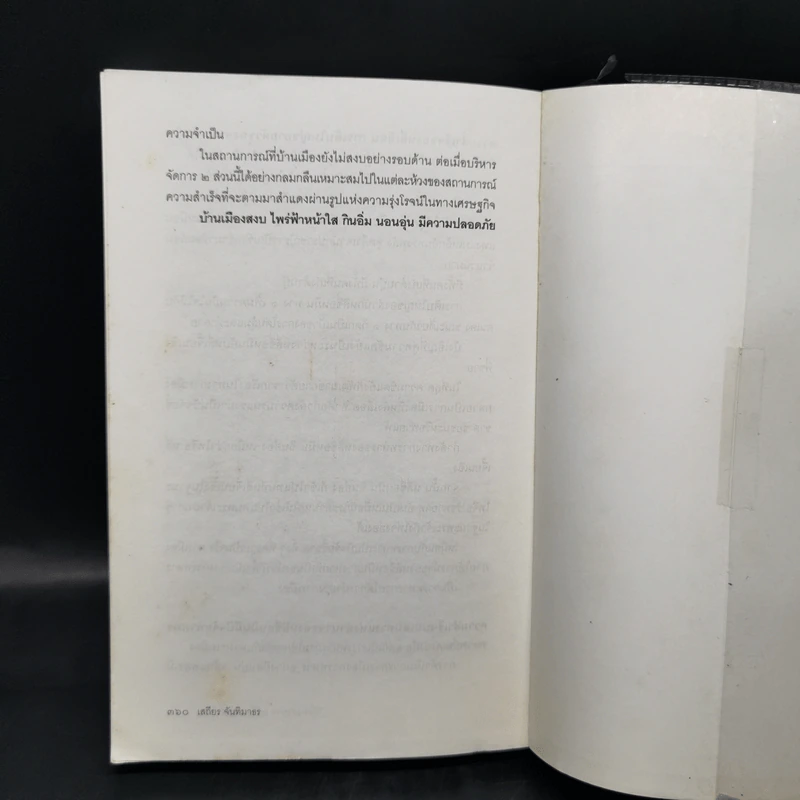 ความจำเป็น
ในสถานการณ์ที่บ้านเมืองยังไม่สงบอย่างรอบด้าน ต่อเมื่อบริหาร
จัดการ ๒ ส่วนนี้ได้อย่างกลมกลืนเหมาะสมไปในแต่ละห้วงของสถานการณ์
ความสำเร็จที่จะตามมาสำแดงผ่านรูปแห่งความรุ่งโรจน์ในทางเศรษฐกิจ
บ้านเมืองสงบ ไพร่ฟ้าหน้าใส กินอิ่ม นอนอุ่น มีความปลอดภัย
๓๖๐ เสถียร จันทิมาธร